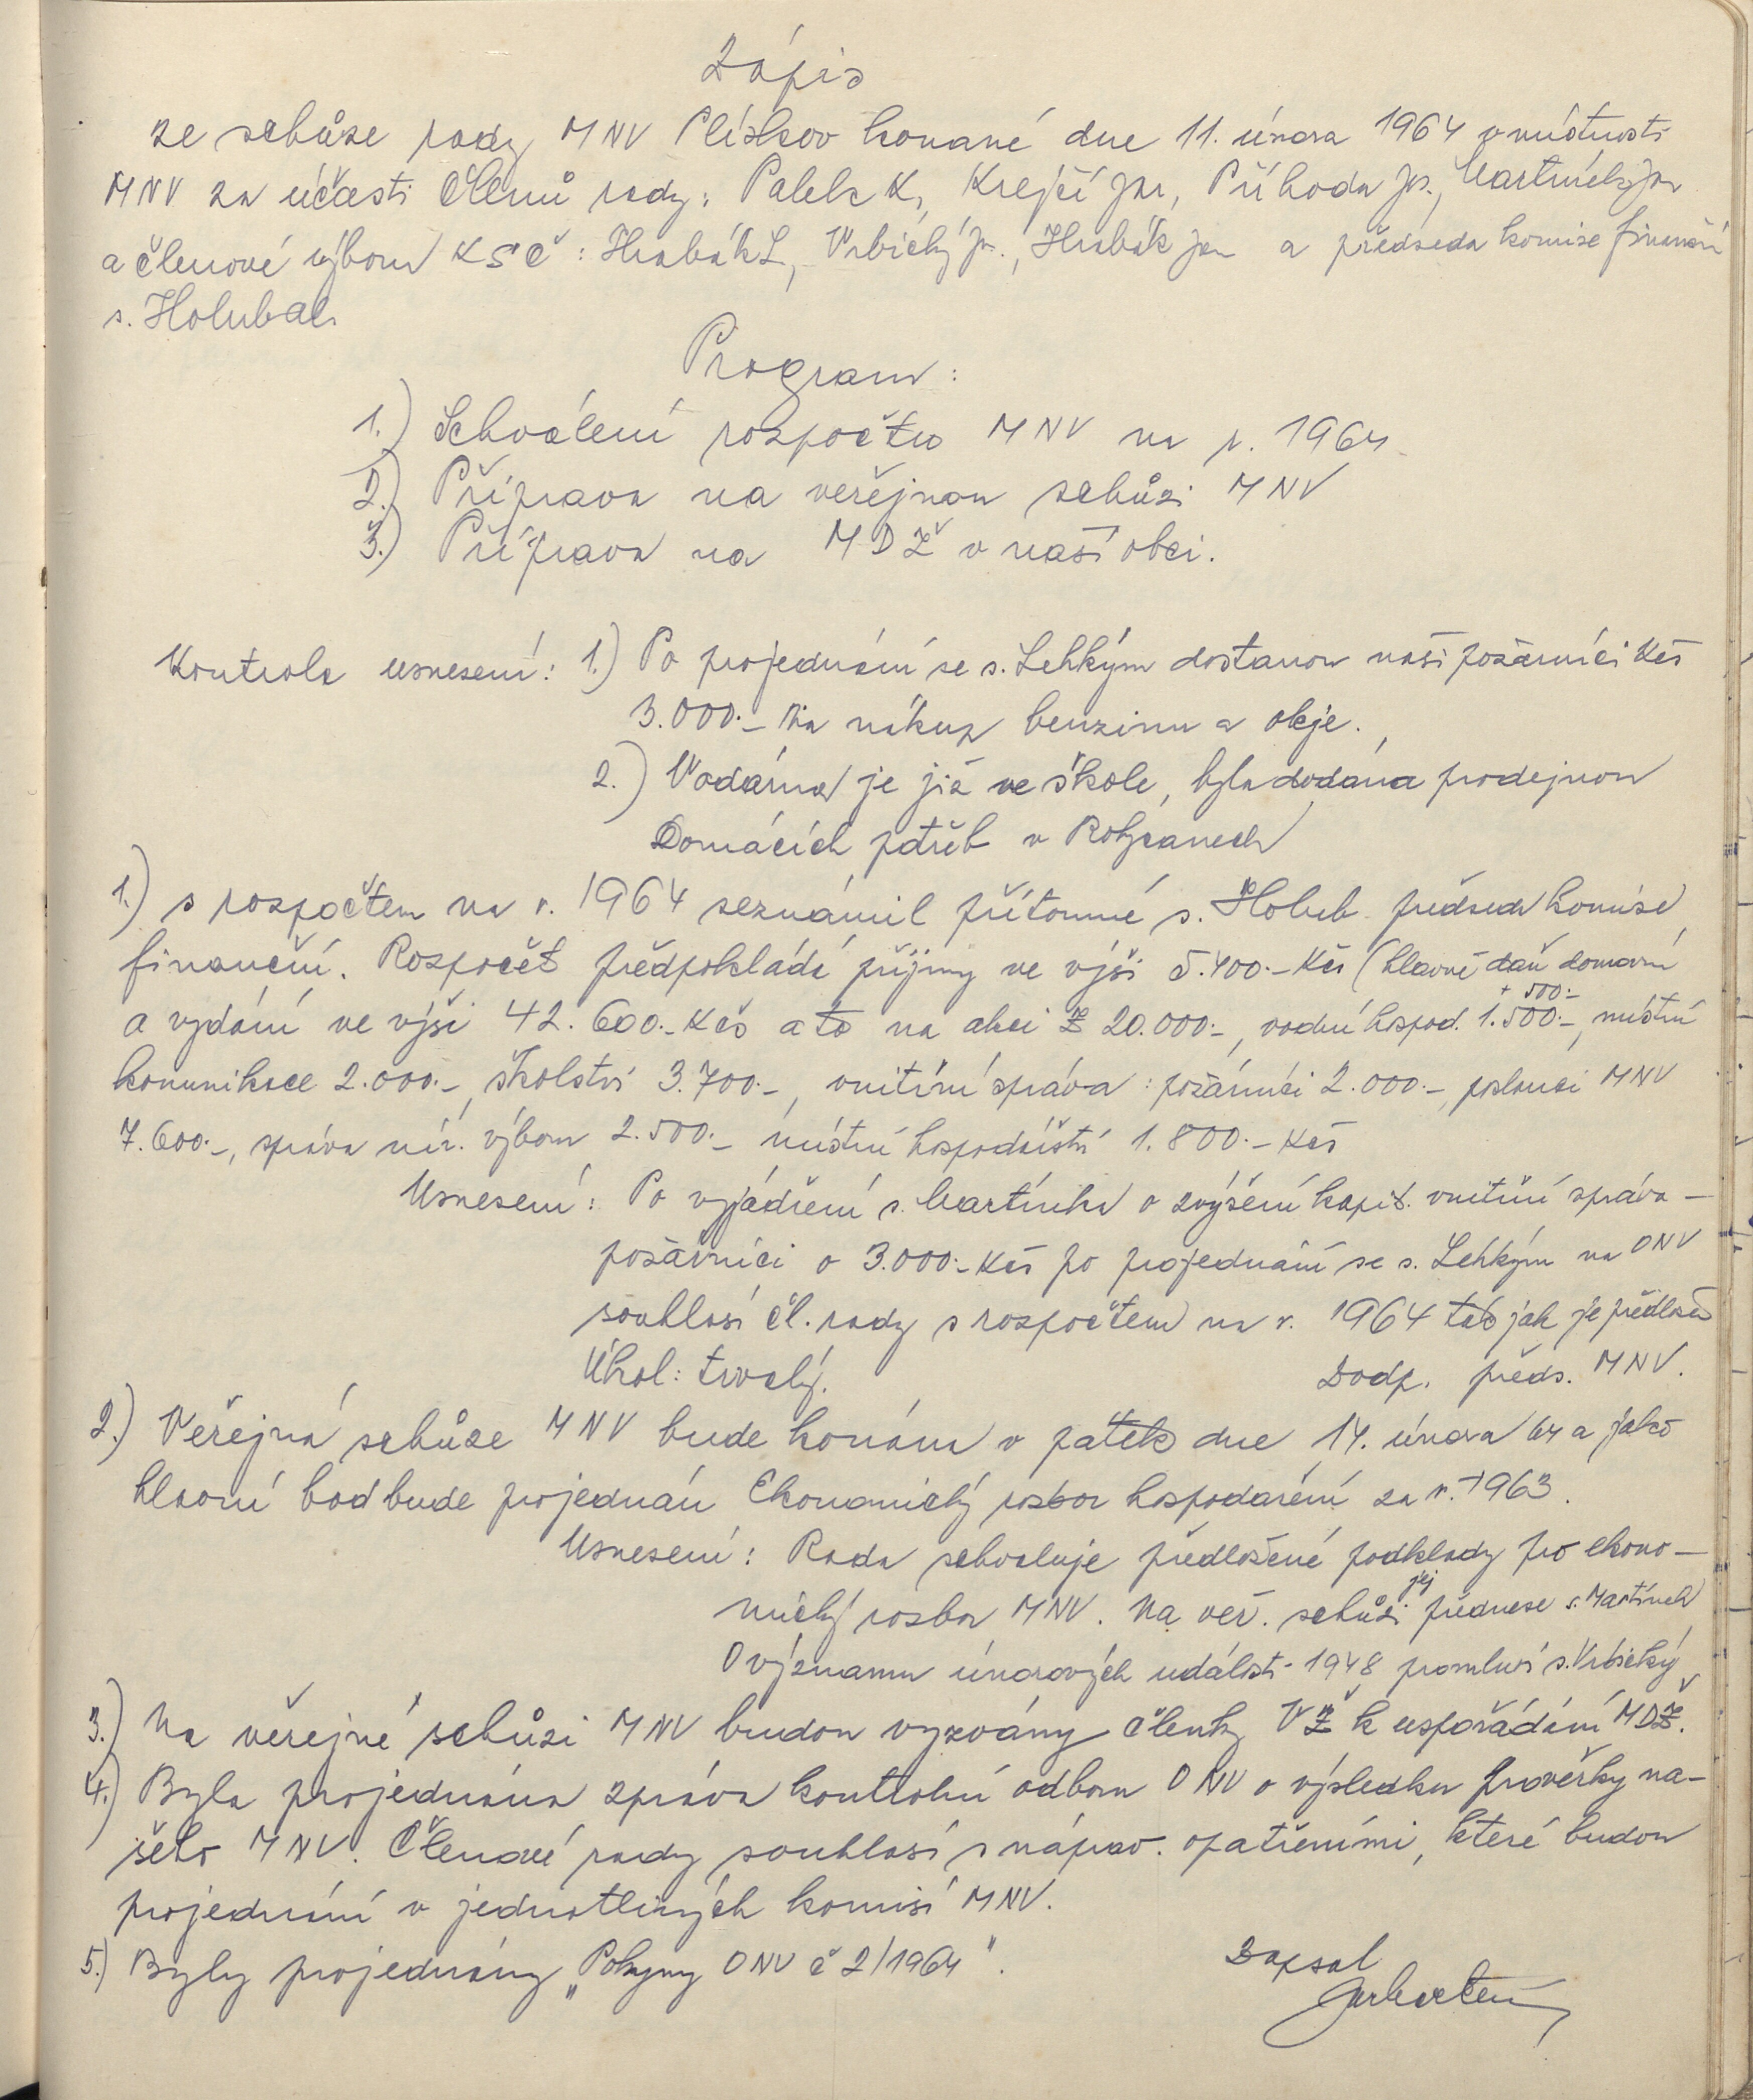 Zápis
ze schůze rady MNV Plískov konané dne 11. února 1964 v místnosti
MNV za účasti členů rady: Palek K, Krejčí Jar, Příhoda Jos., Martínek Jan
a členové výboru KSČ: Hrabák L, Vrbický Jos., Hrabák Jan a předseda komise finanční
s. Holub Al.
Program:
1.) Schválení rozpočtu MNV na r. 1964
2.) Příprava na veřejnou schůzi MNV
3.) Příprava na MDŽ v naší obci.
Kontrola usnesení: 1.) Po projednání se s. Lehkým dostanou naši požárníci Kčs
3.000.- na nákup benzinu a oleje.
2.) Vodárna je již ve škole, byla dodána prodejnou
Domácích potřeb v Rokycanech
1.) s rozpočtem na r. 1964 seznámil přítomné s. Holub předseda komise
finanční. Rozpočet předpokládá příjmy ve výši 5.400.- Kčs (hlavně daň domovní
+ 500.-
a vydání ve výši 42.600.- Kčs a to na akci Z 20.000.-, vodní hospod. 1.500.-, místní
komunikace 2.000.-, školství 3.700.-, vnitřní správa: požárníci 2.000.-, poslanci MNV
7.600.-, správa nár. výboru 2.500.- místní hospodářství 1.800.- Kčs
Usnesení: Po vyjádření s. Martínka o zvýšení kapit. vnitřní správa -
požárníci o 3.000.- Kčs po projednání se s. Lehkým na ONV
souhlasí čl. rady s rozpočtem na r. 1964 tak jak je předložen
Úkol: trvalý. Zodp. předs. MNV.
2.) Veřejná schůze MNV bude konána v pátek dne 14. února 64 a jako
hlavní bod bude projednán Ekonomický rozbor hospodaření za r. 1963.
Usnesení: Rada schvaluje předložené podklady pro ekono-
mický rozbor MNV. Na veř. schůzi jej přednese s. Martínek
O významu únorových událostí 1948 promluví s. Vrbický
3.) Na veřejné schůzi MNV budou vyzvány členky VŽ k uspořádání MDŽ.
4.) Byla projednána zpráva kontrolní odboru ONV o výsledku prověrky na-
šeho MNV. Členové rady souhlasí s náprav. opatřeními, které budou
projednání v jednotlivých komisí MNV.
5.) Byly projednány „Pokyny ONV č 2/1964".
Zapsal